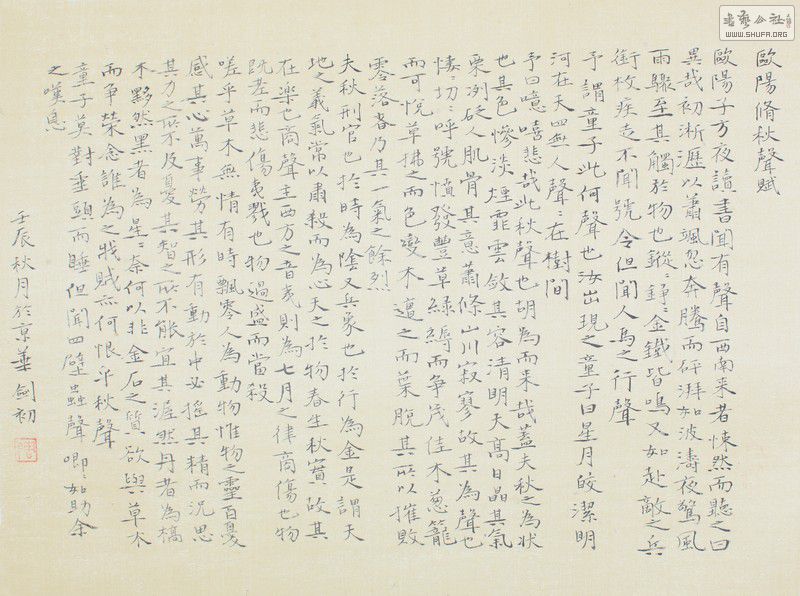 歐陽脩秋聲賦
歐陽子方夜讀書聞有聲自西南来者悚然而聽之曰
異哉初淅瀝以蕭颯忽奔騰而砰湃如波濤夜驚風
雨驟至其觸於物也鏦〻錚〻金鐵皆鳴又如赴敵之兵
銜枚疾走不聞號令但聞人馬之行聲
予謂童子此何聲也汝出現之童子曰星月皎潔明
河在天四無人聲〻在樹間
予曰噫嘻悲哉此秋聲也胡為而来哉蓋夫秋之為状
也其色慘淡煙霏雲斂其容清明天高日晶其氣
栗冽砭人肌骨其意蕭條山川寂寥故其為聲也
悽〻切〻呼號憤發豐草綠縟而争茂佳木蔥籠
而可悅草拂之而色變木遭之而葉脫其所以摧敗
零落者乃其一氣之餘烈
夫秋刑官也於時為陰又兵象也於行為金是謂天
地之義氣常以肅殺而為心天之於物春生秋實故其
在樂也商聲主西方之音夷則為七月之律商傷也物
既老而悲傷夷戮也物過盛而當殺
嗟乎草木無情有時飄零人為動物惟物之靈百憂
感其心萬事勞其形有動於中必搖其精而況思
其力之所不及憂其智之所不能宜其渥然丹者為槁
木黟然黑者為星〻奈何以非金石之質欲與草木
而争榮念誰為之戕賊亦何恨乎秋聲
童子莫對垂頭而睡但聞四壁蟲聲唧〻如助余
之嘆息
壬辰秋月於京華劍初
書藝公社
WWW.SHUFA.ORG